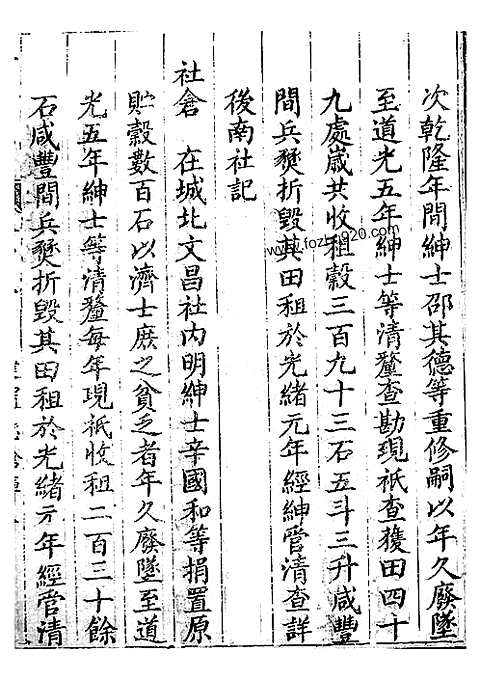 次乾隆年間紳士邵其德等重修嗣以年久廢墜
至道光五年紳士等清釐查勘現祇查獲田四十
九處歲共收租穀三百九十三石五斗三升咸豐
間兵燹折毀其田租於光緒元年經紳管清查詳
後南社記
社倉　在城北文昌社内明紳士辛國和等捐置原
貯穀數百石以濟士庶之貧乏者年久廢墜至道
光五年紳士等清釐每年現祇收租二百三十餘
石咸豐間兵燹折毀其田租於光緒元年經管清